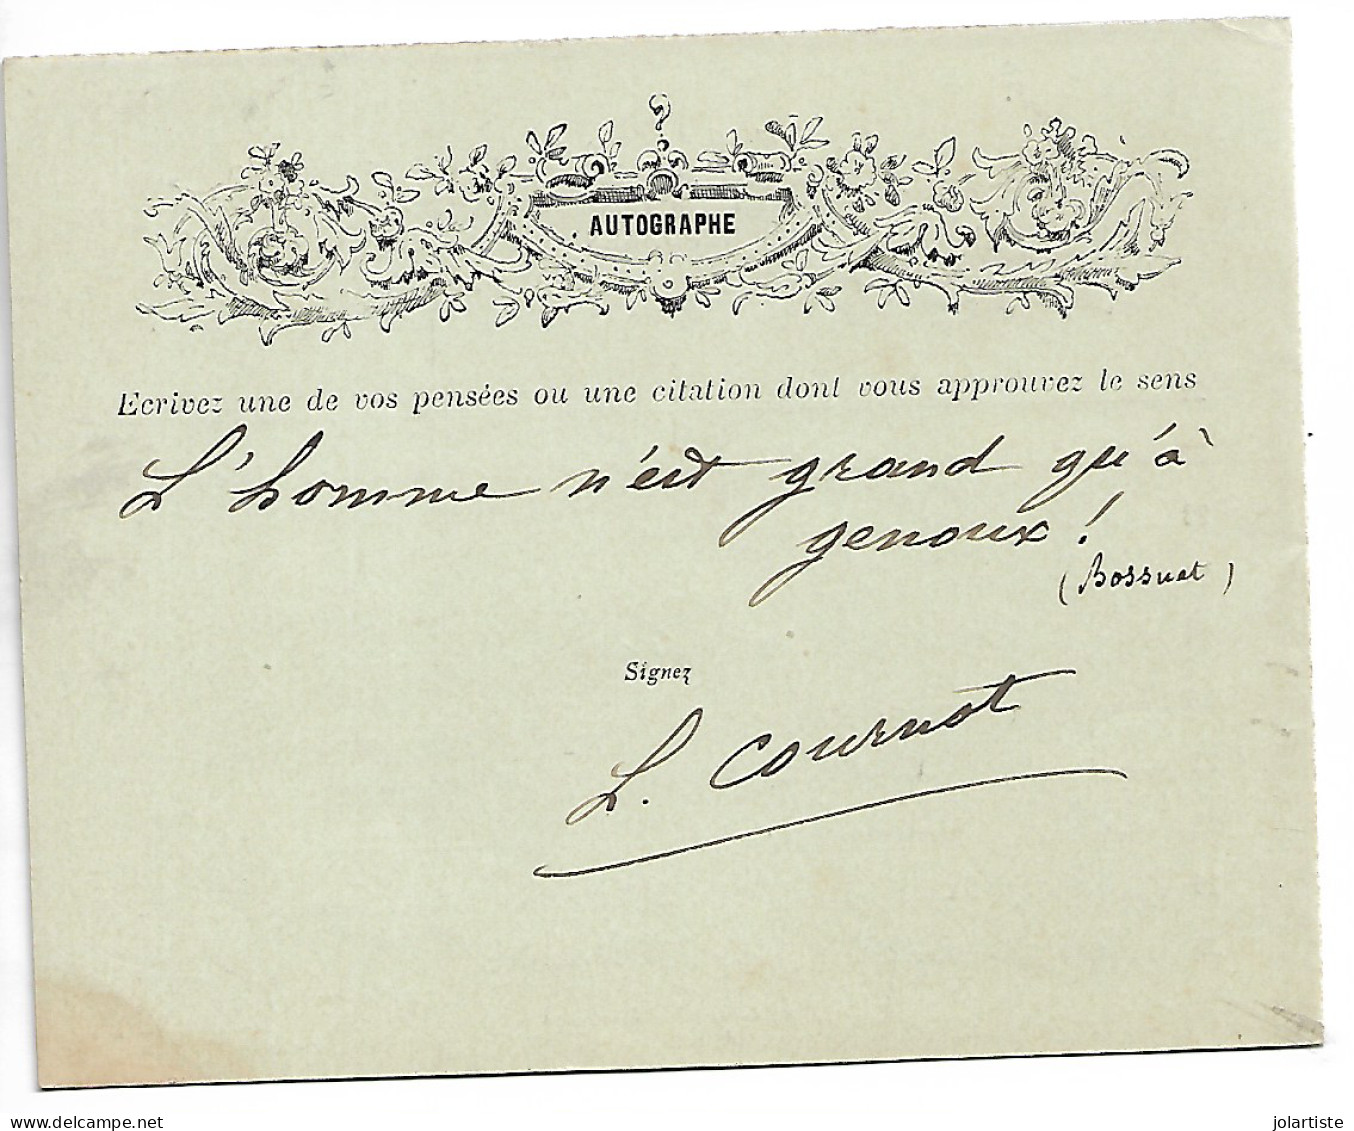 AUTOGRAPHE
Ecrivez une de vos pensées ou une citation dont vous approuvez le sens
L'homme n'est grand qu'à
genoux !
(Bossuet)
Signez
L. Cournot
www.delcampe.net
jolartiste